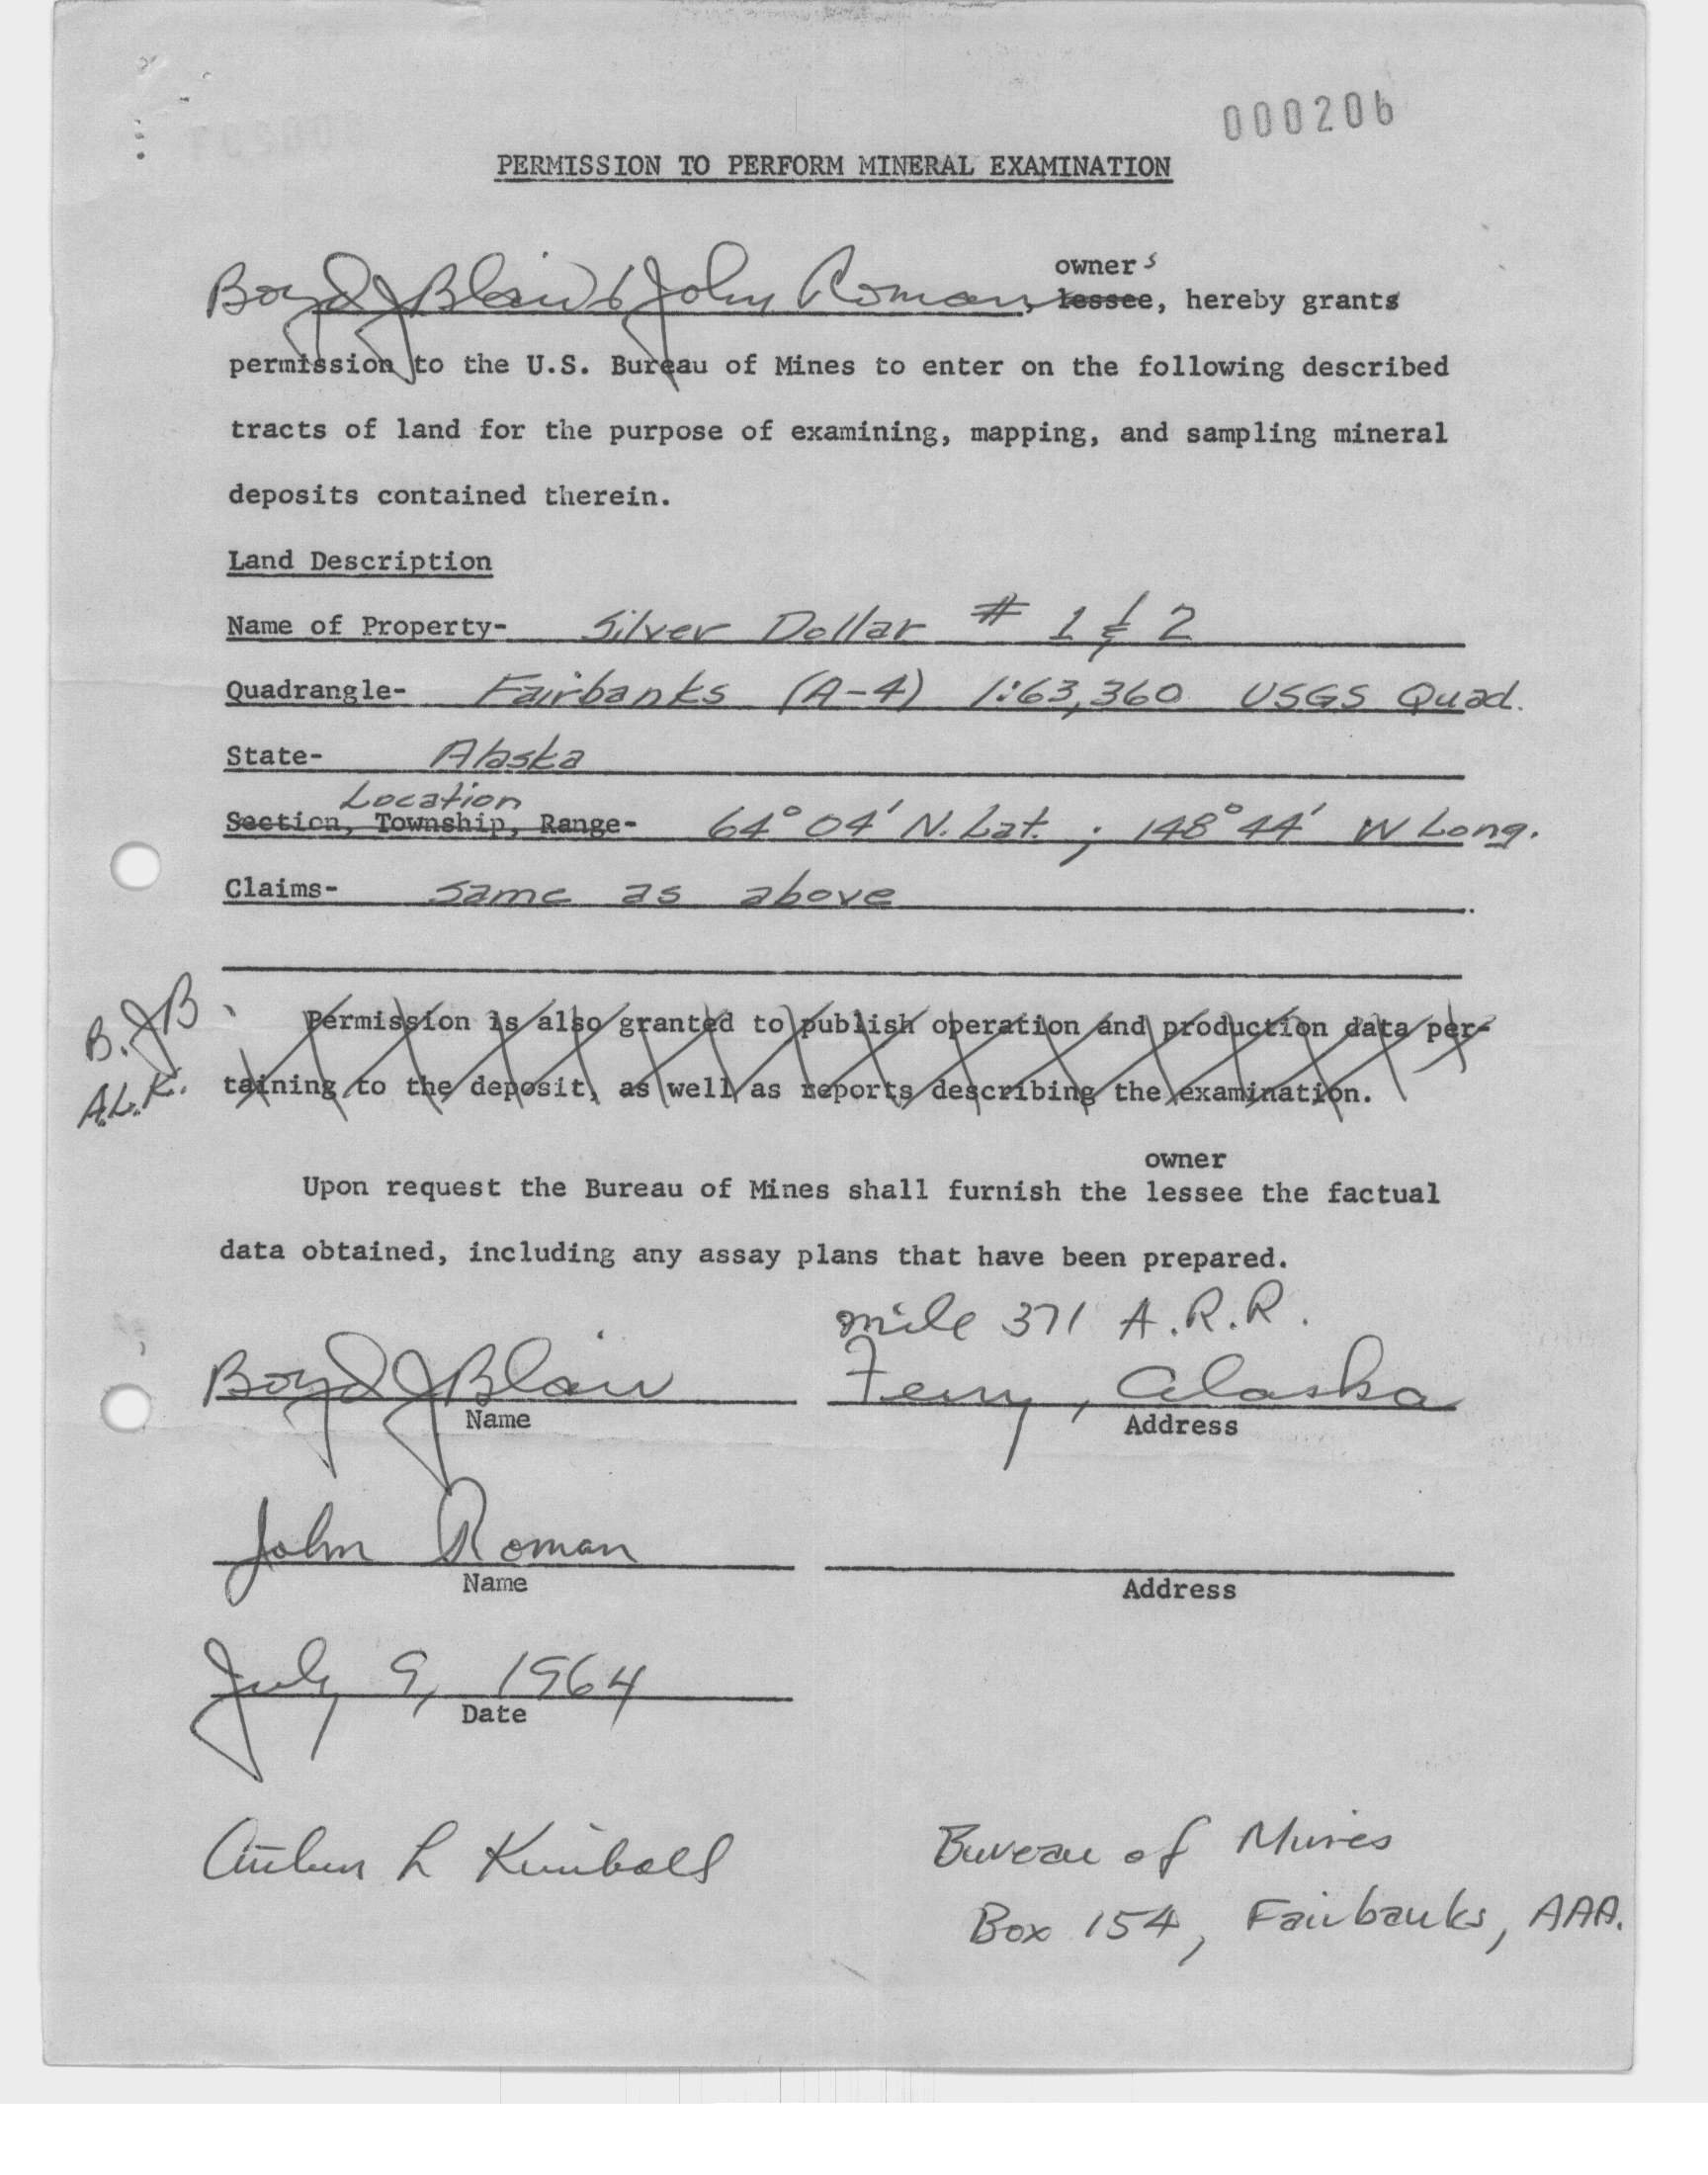 000206
PERMISSION TO PERFORM MINERAL EXAMINATION
owners
Boyd J Blair & John Roman, lessee, hereby grants
permission to the U.S. Bureau of Mines to enter on the following described
tracts of land for the purpose of examining, mapping, and sampling mineral
deposits contained therein.
Land Description
Name of Property- Silver Dollar # 1 & 2
Quadrangle- Fairbanks (A-4) 1:63,360 USGS Quad.
State- Alaska
Location
Section, Township, Range- 64° 04' N. Lat. ; 148° 44' W Long.
Claims- same as above.
B.JB.
Permission is also granted to publish operation and production data per-
A.L.K.
taining to the deposit, as well as reports describing the examination.
owner
Upon request the Bureau of Mines shall furnish the lessee the factual
data obtained, including any assay plans that have been prepared.
mile 371 A.R.R.
Boyd J Blair Ferry, Alaska
Name Address
John Roman
Name Address
July 9, 1964
Date
Arthur L Kimball Bureau of Mines
Box 154, Fairbanks, AAA.